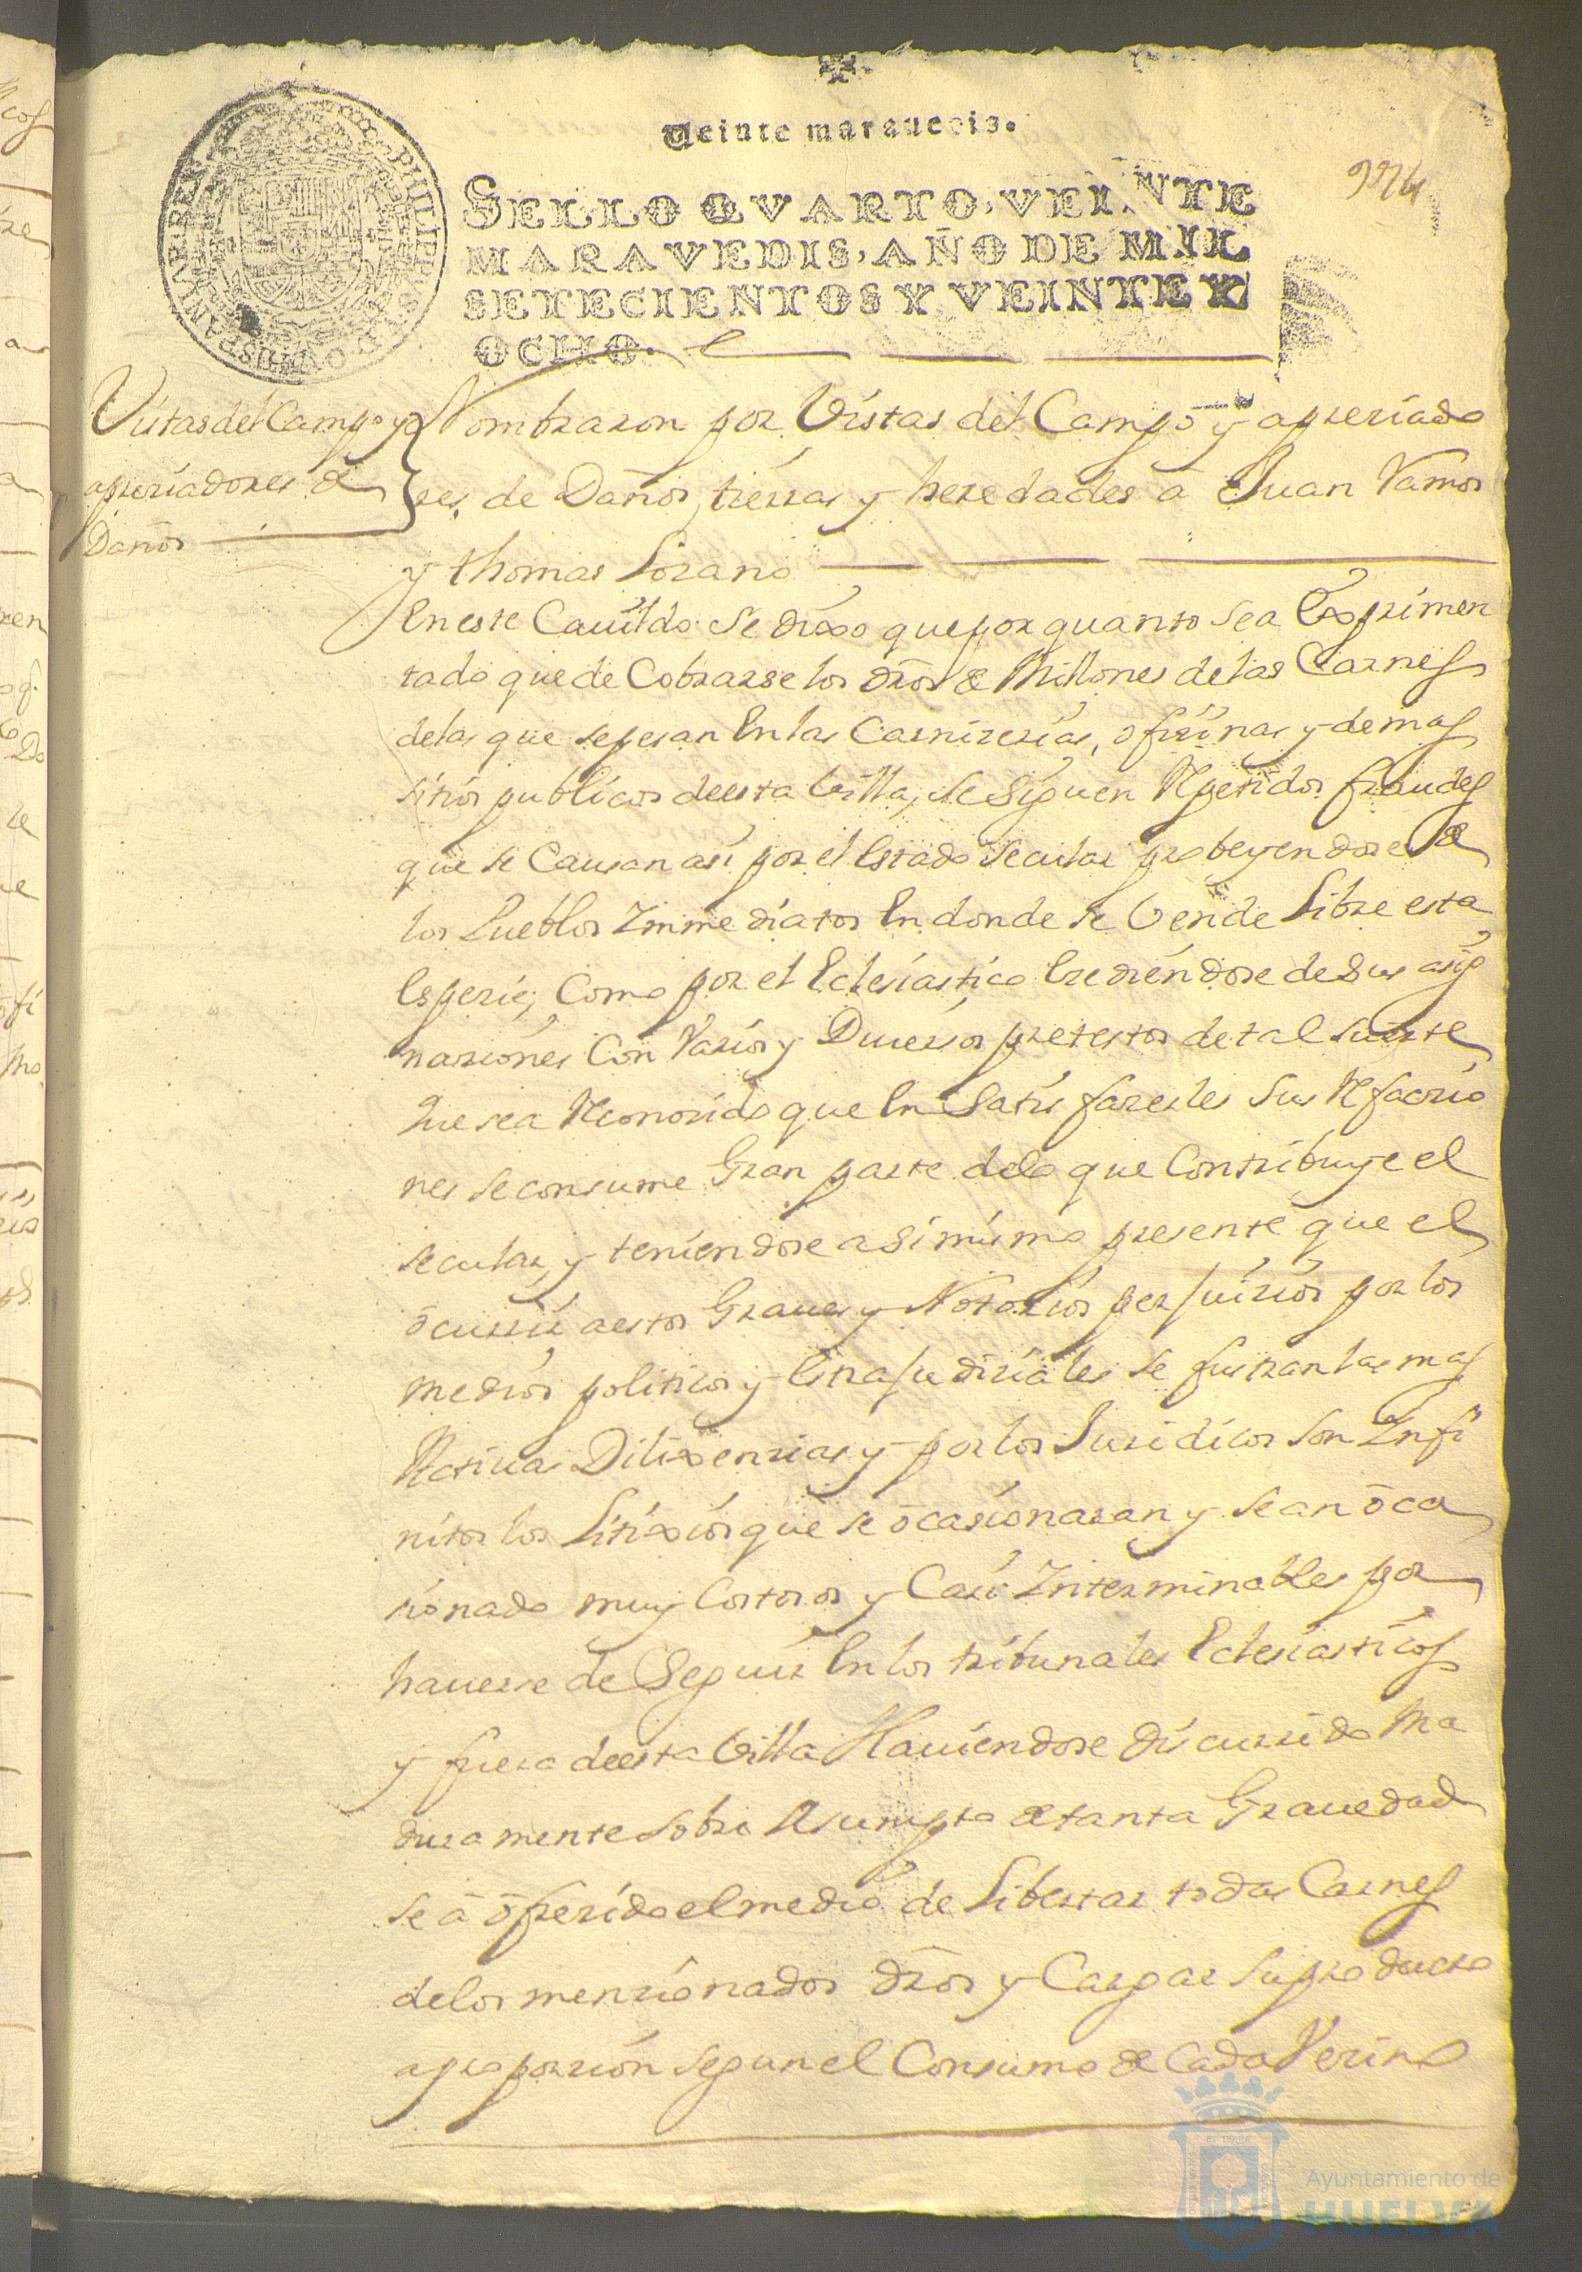 Veinte marauedis.
SELLO QVARTO, VEINTE
MARAVEDIS, AÑO DE MIL
SETECIENTOS Y VEINTE Y
OCHO.
Vistas del Campo y
apreciadores de
Daños
Nombraron por Vistas del Campo y apreciado
res de Daños, tierras y heredades a Juan Ramos
y thomas Lozano
En este Cauildo se dixo que por quanto sea Exprimen
tado que de Cobrarse los dros de Millones de las Carnes
de las que se pesan En las Carnizerias, ofizinas y demas
sitios publicos de esta Villa, se siguen Repetidos fraudes
que se Causan asi por el Estado secular probeyendose de
los Pueblos Immediatos En donde se Vende Libre esta
Espezie, Como por el Eclesiastico Excediendose de sus asig
naziones Con Varios y Diuersos pretestos de tal suerte
que sea Reconozido que En Satisfazerles sus Refaczio
nes se consume Gran parte de lo que Contribuye el
secular, y teniendose asimismo presente que el
ocurrir a estos Graues y Notorios perjuizios por los
medios politicos y Estrajudiziales se frustran las mas
Actiuas Dilixenzias y por los Juridicos son Infi
nitos los Litixios que se ocasionaran y se an oca
sionado muy Costosos y Casi Interminables por
hauerse de Seguir En los tribunales Eclesiasticos
y fuera de esta Villa Hauiendose discurrido Ma
duramente sobre Asumpto de tanta Grauedad
se a ofrezido el medio de Libertar todas Carnes
de los menzionados dros y Cargar su producto
a proporzion segun el Consumo de Cada Vezino
Ayuntamiento de
HUELVA